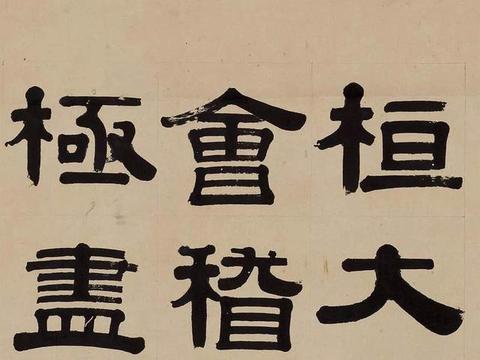 桓大
會稽
極盡